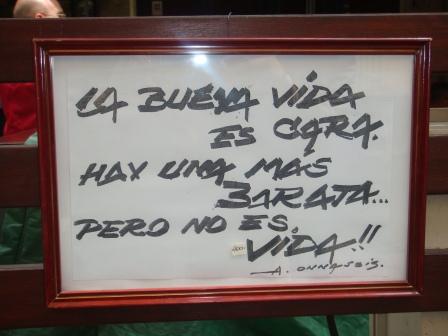 LA BUENA VIDA
ES CARA.
HAY UNA MÁS
BARATA...
PERO NO ES.
VIDA!!
A. ONNASEIS.